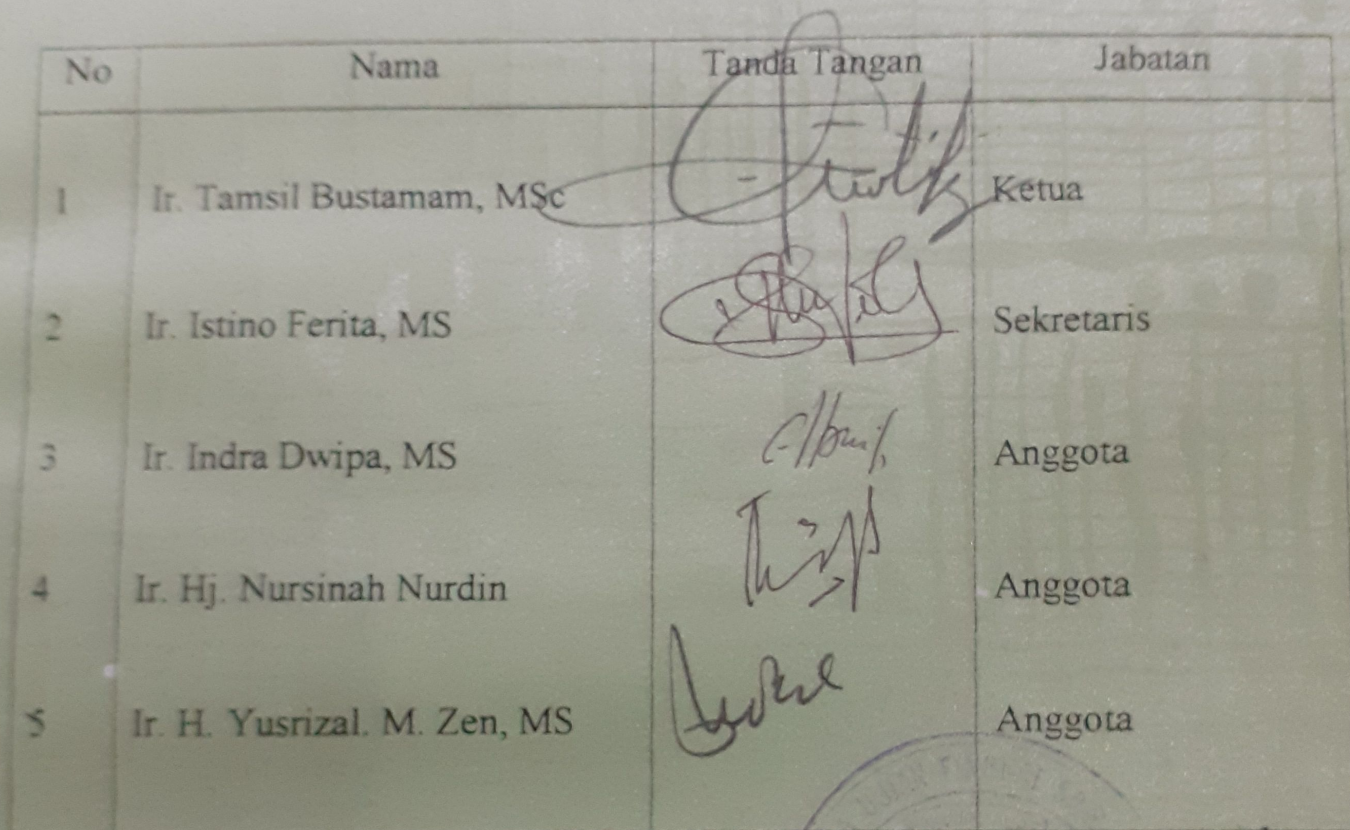 No Nama Tanda Tangan Jabatan
1 Ir. Tamsil Bustamam, MSc Ketua
2 Ir. Istino Ferita, MS Sekretaris
3 Ir. Indra Dwipa, MS Anggota
4 Ir. Hj. Nursinah Nurdin Anggota
5 Ir. H. Yusrizal. M. Zen, MS Anggota